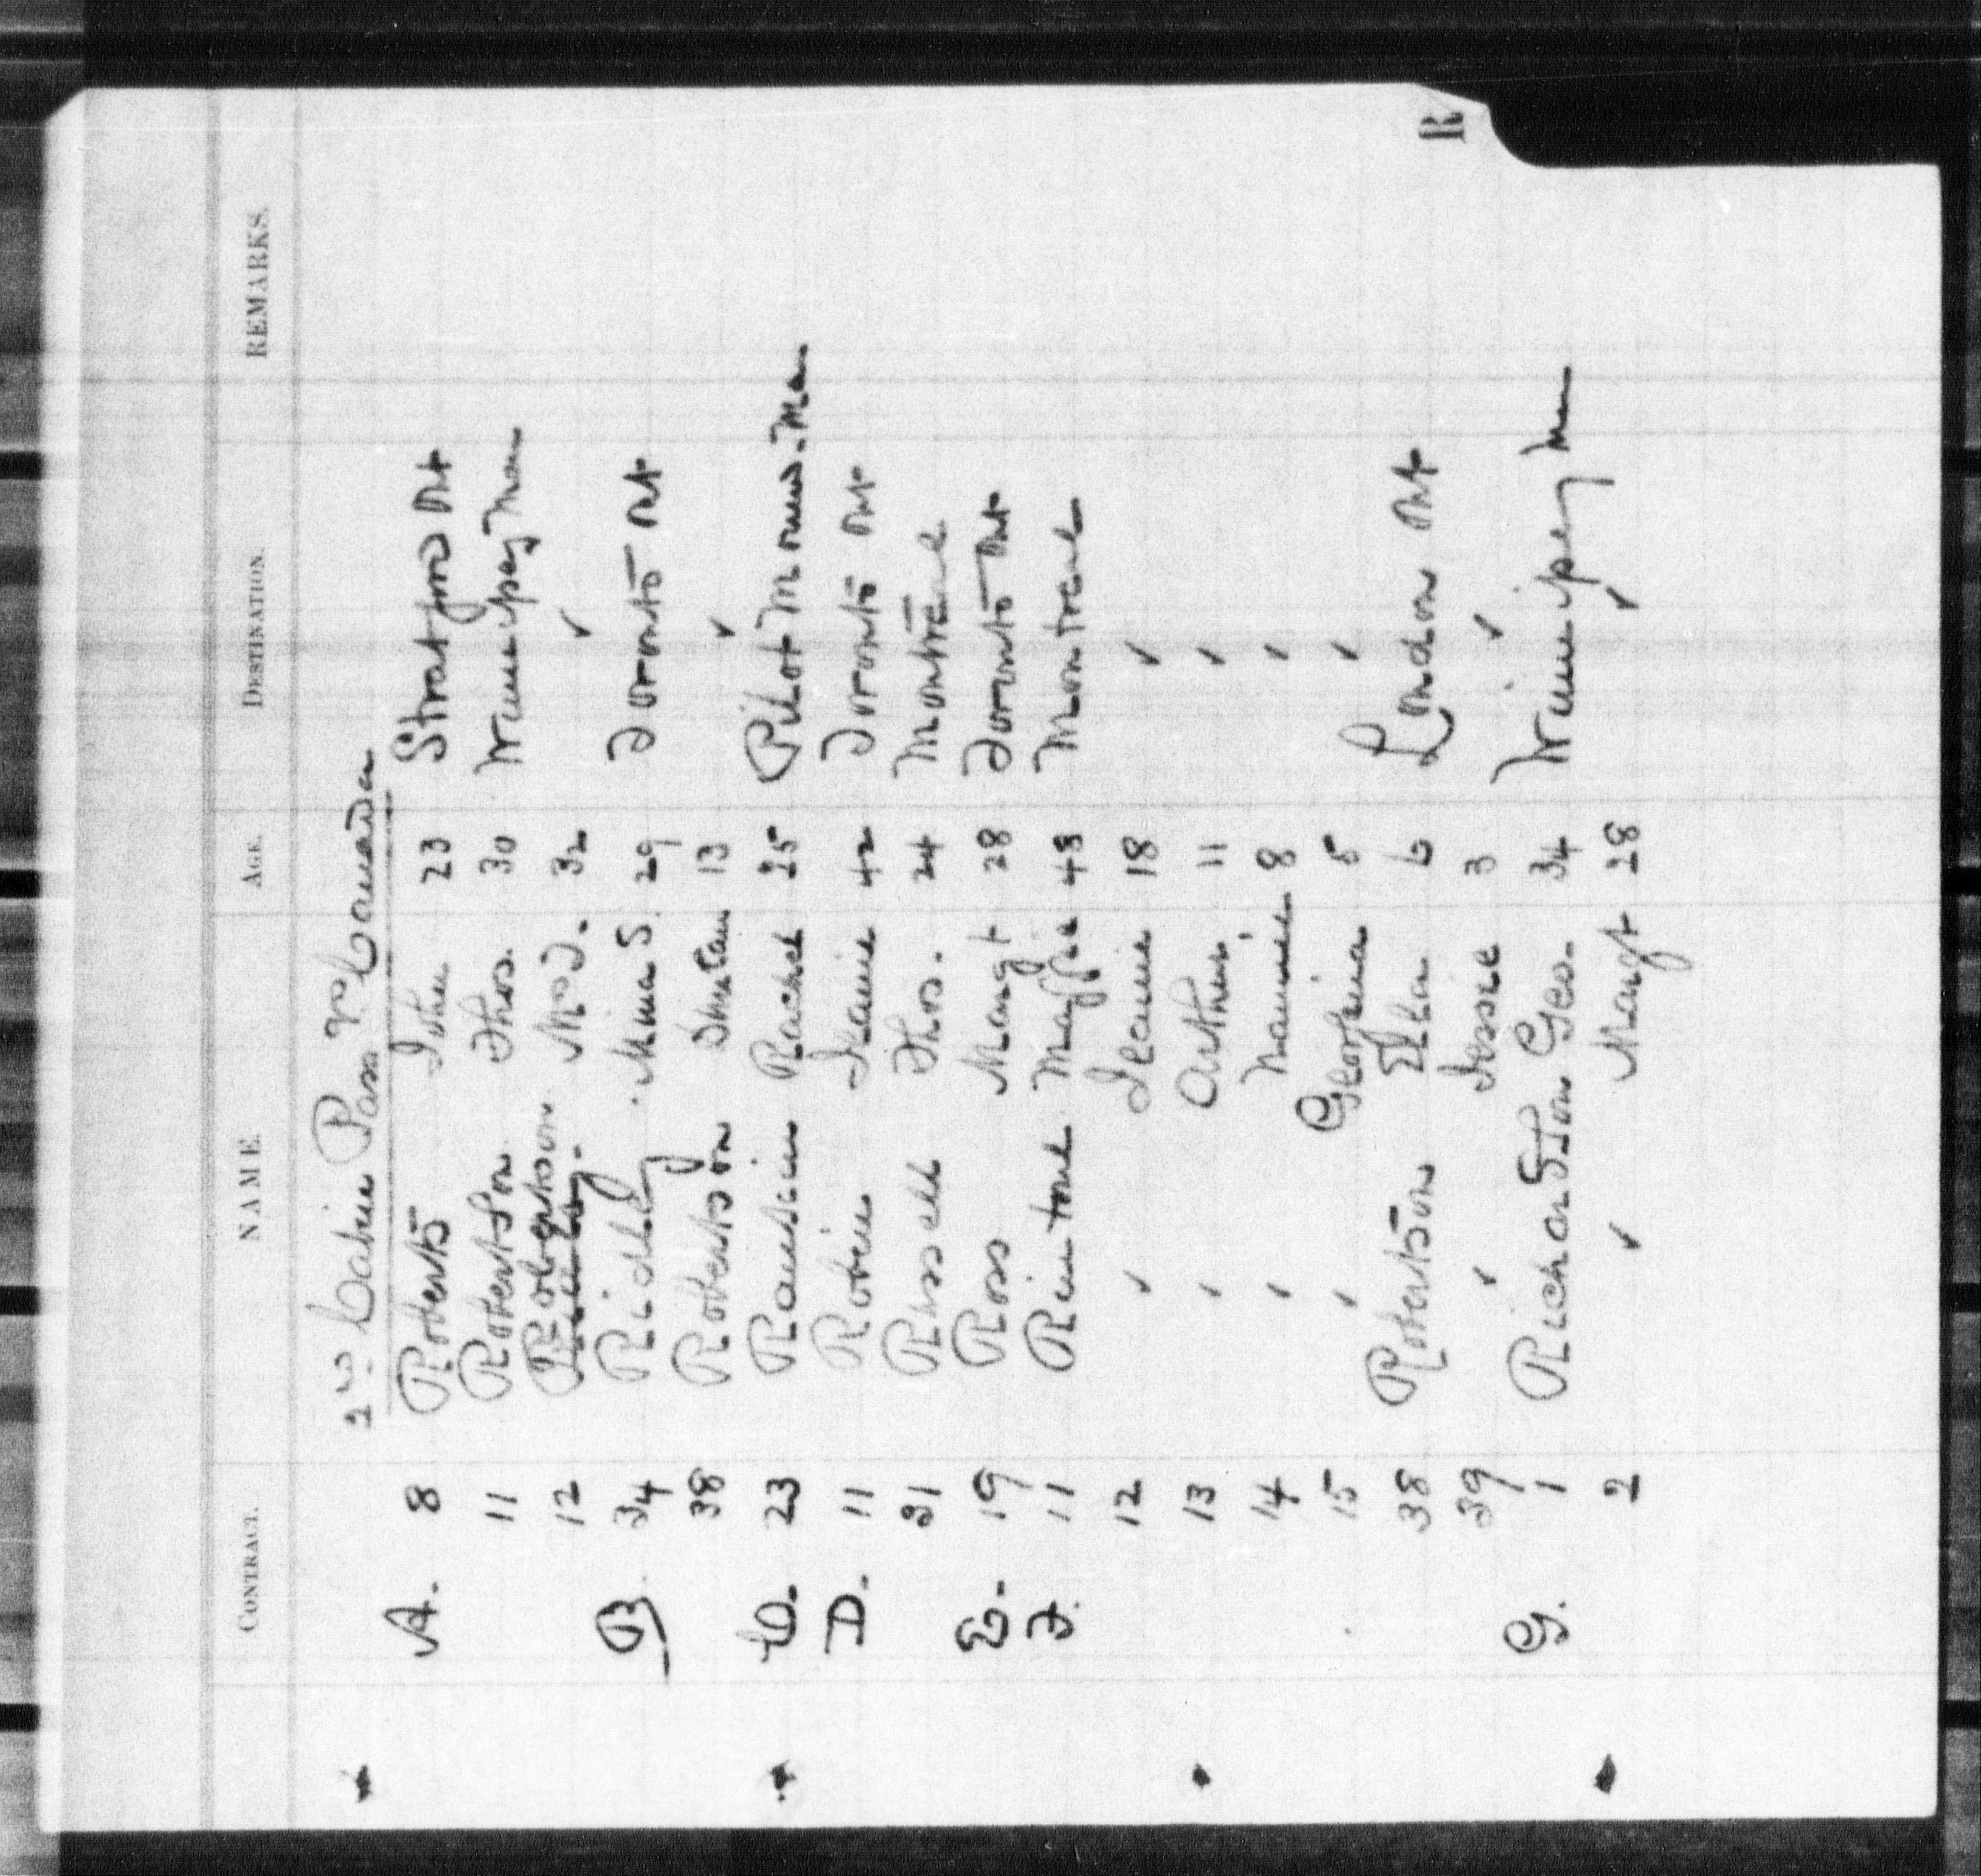 R
CONTRACT. NAME. AGE. DESTINATION. REMARKS.
2nd Cabin Pass to Canada
A. 8 Roberts John 23 Stratford Ont
11 Robertson Thos. 30 Winnipeg Man
12 Robertson Mrs J. 32 ✓
B 34 Ridley Mina S. 29 Toronto Ont
38 Robertson 13 ✓
C. 23 Rankin Rachel 25 Pilot Mound. Man
D. 11 Robin Jeanie 42 Toronto Ont
31 Russell Thos. 24 Montreal
E. 19 Ross Margt 28 Toronto Ont
F. 11 Rintoul Maggie 48 Montreal
12 ✓ Jeanie 18 ✓
13 ✓ Arthur 11 ✓
14 ✓ Nannie 8 ✓
15 ✓ Georgina 5 ✓
38 Robertson Ella 6 London Ont
39 ✓ Jessie 3 ✓
G. 1 Richardson Geo. 34 Winnipeg Man
2 ✓ Margt 28 ✓